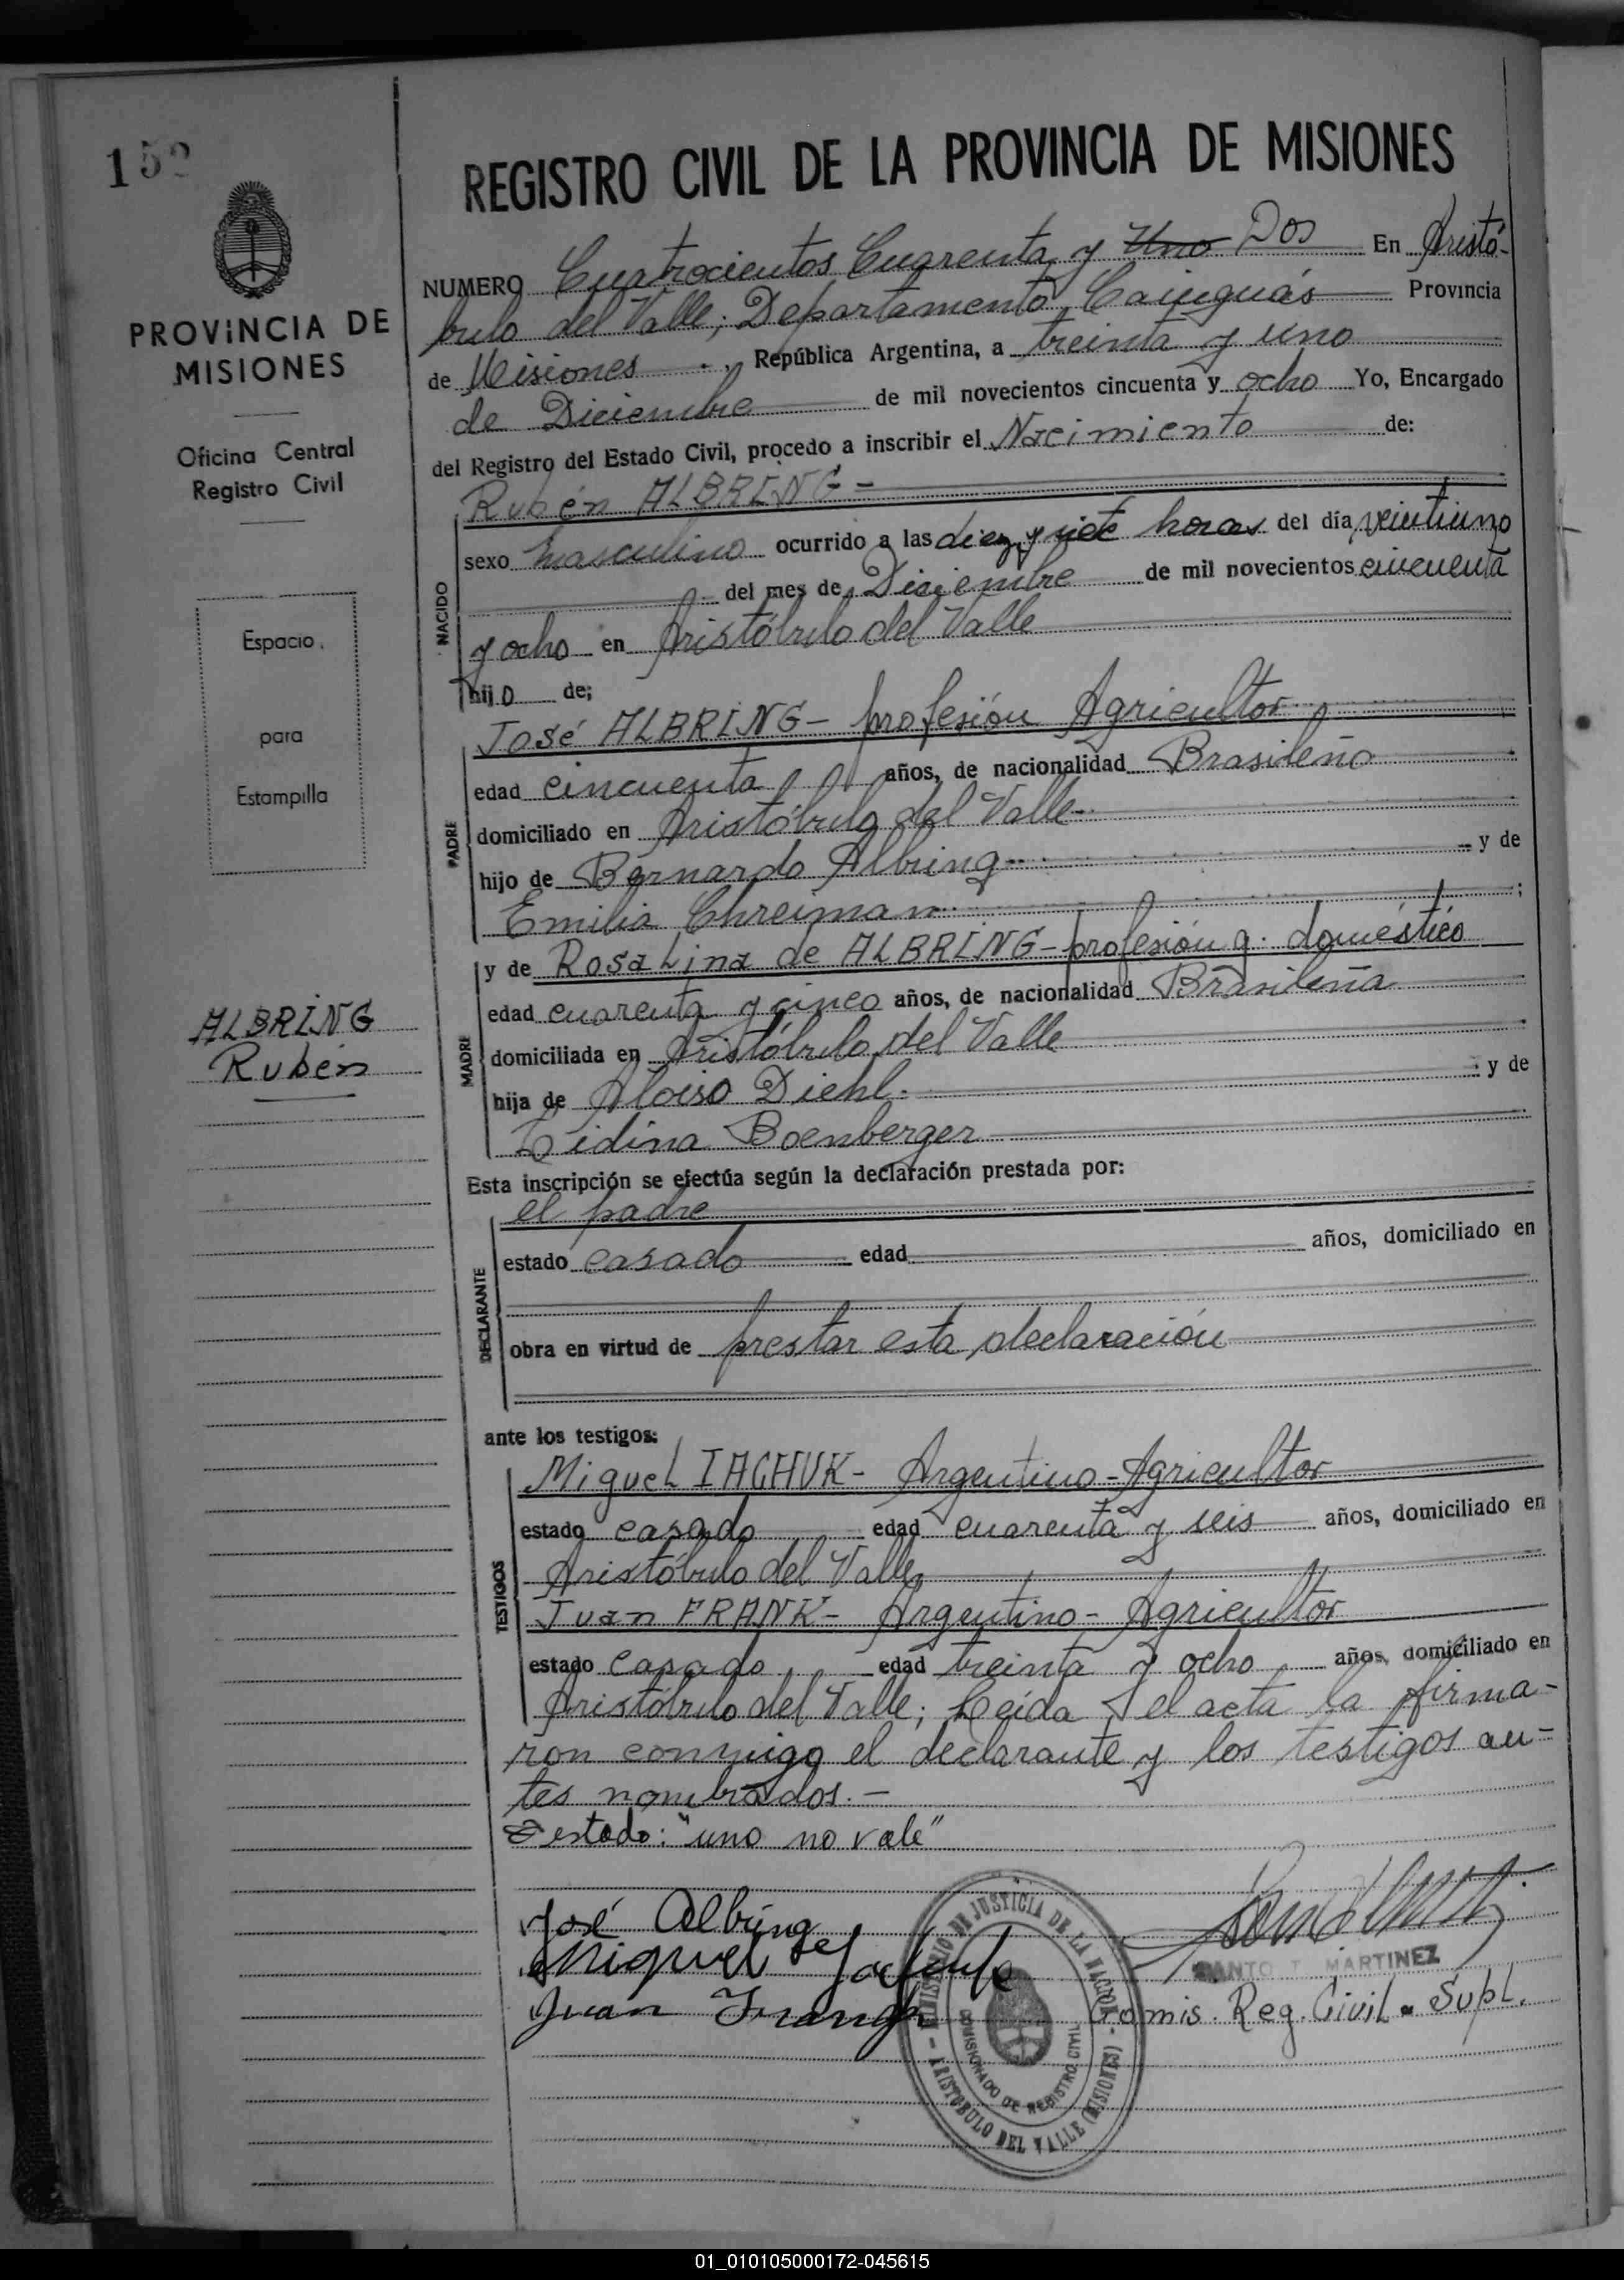 152
PROVINCIA DE
MISIONES
Oficina Central
Registro Civil
Espacio
para
Estampilla
ALBRING
Rubén
REGISTRO CIVIL DE LA PROVINCIA DE MISIONES
NUMERO Cuatrocientos Cuarenta y Uno Dos En Aristó-
bulo del Valle, Departamento Cainguás Provincia
de Misiones, República Argentina, a treinta y uno
de Diciembre de mil novecientos cincuenta y ocho Yo, Encargado
del Registro del Estado Civil, procedo a inscribir el Nacimiento de:
Rubén ALBRING-
NACIDO
sexo masculino ocurrido a las diez y siete horas del día veintiuno
del mes de Diciembre de mil novecientos cincuenta
y ocho en Aristóbulo del Valle
hijo de;
José ALBRING- profesión Agricultor
PADRE
edad cincuenta años, de nacionalidad Brasileño
domiciliado en Aristóbulo del Valle-
hijo de Bernardo Albring y de
Emilia Chreiman ;
y de Rosalina de ALBRING- profesión q. doméstico
MADRE
edad cuarenta y cinco años, de nacionalidad Brasileña
domiciliada en Aristóbulo del Valle
hija de Aloiso Diehl- y de
Lidina Boenberger
Esta inscripción se efectúa según la declaración prestada por:
el padre
DECLARANTE
estado casado edad años, domiciliado en
obra en virtud de prestar esta declaración
ante los testigos:
Miguel IACHUK- Argentino-Agricultor
TESTIGOS
estado casado edad cuarenta y seis años, domiciliado en
Aristóbulo del Valle,
Juan FRANK- Argentino- Agricultor
estado casado edad treinta y ocho años, domiciliado en
Aristóbulo del Valle; Leída el acta la firma-
ron conmigo el declarante y los testigos an-
tes nombrados.-
testado: "uno no vale"
José Albring
Miguel
Juan
SANTO T. MARTINEZ
Comis. Reg. Civil - Supl.
MINISTERIO DE JUSTICIA DE LA NACION
COMISIONADO DE REGISTRO CIVIL
- ARISTOBULO DEL VALLE (MISIONES) -
01_010105000172-045615